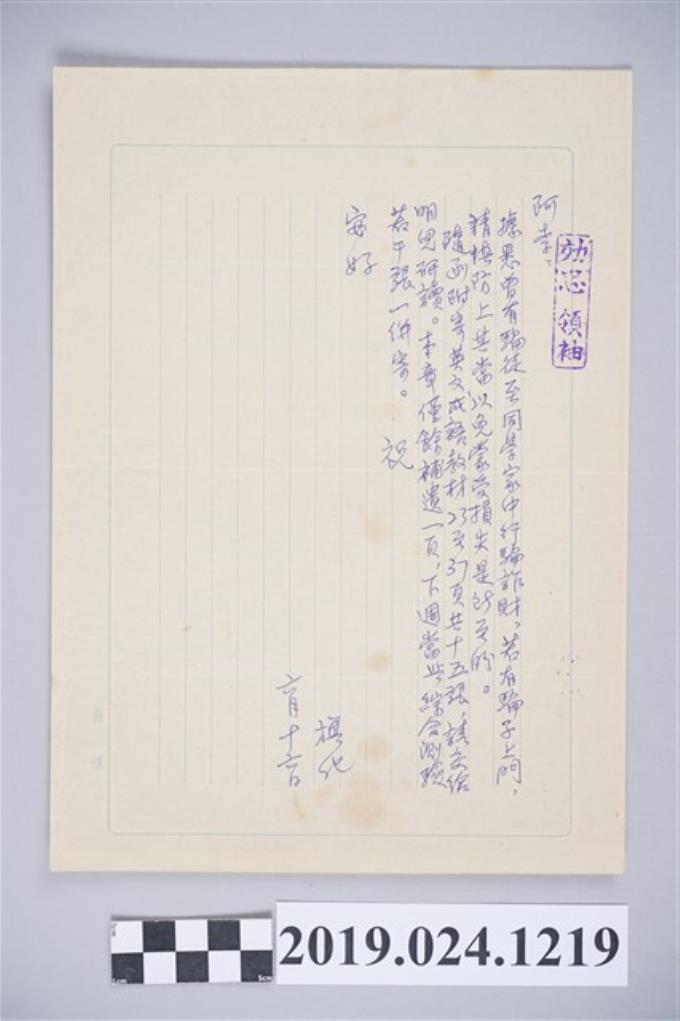 効忠領袖
阿李、
據悉曾有騙徒至同學家中行騙詐財、若有騙子上門、
請慎防上其當以免蒙受損失是所至盼。
隨函附寄英文成語教材23至37頁共十五張,請交給
明兒研讀。本章僅餘補遺一頁,下週當與綜合測驗
若干張一併寄。 祝
安好
旗化
六月十六日
2019.024.1219